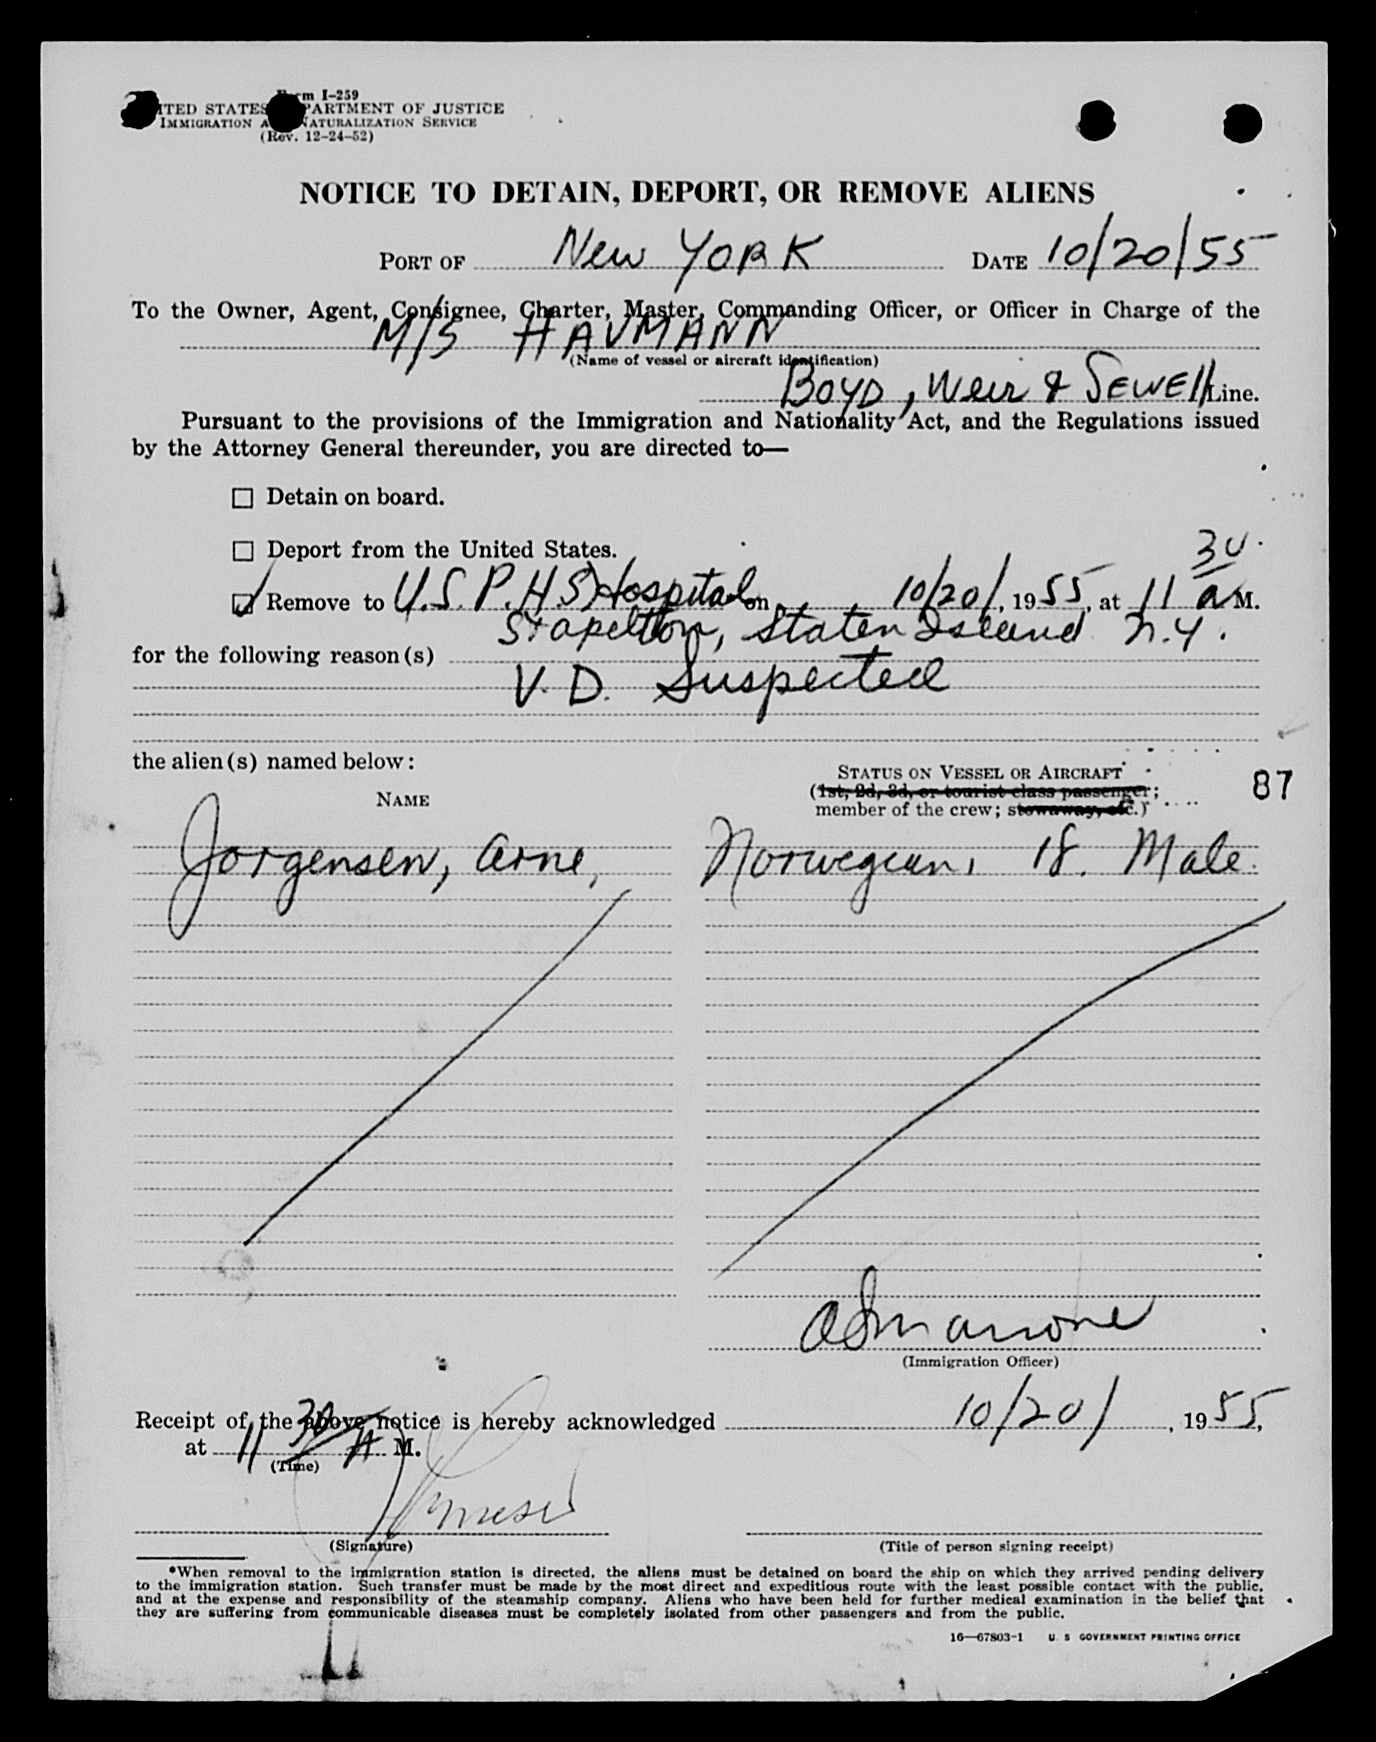 Form I-259
UNITED STATES DEPARTMENT OF JUSTICE
IMMIGRATION AND NATURALIZATION SERVICE
(Rev. 12-24-52)
NOTICE TO DETAIN, DEPORT, OR REMOVE ALIENS
PORT OF New YORK DATE 10/20/55
To the Owner, Agent, Consignee, Charter, Master, Commanding Officer, or Officer in Charge of the
M/S HAVMANN
(Name of vessel or aircraft identification)
BOYD, Weir & SEWEll Line.
Pursuant to the provisions of the Immigration and Nationality Act, and the Regulations issued
by the Attorney General thereunder, you are directed to—
☐ Detain on board.
☐ Deport from the United States.
☑ Remove to U.S.P.H.S Hospital on 10/20/, 1955, at 11 30 a M.
Stapelton, Staten Island N.Y.
for the following reason(s)
V.D. Suspected
the alien(s) named below:
STATUS ON VESSEL OR AIRCRAFT
NAME
(1st, 2d, 3d, or tourist class passenger;
member of the crew; stowaway, etc.)
87
Jorgensen, Arne, Norwegian, 18. Male.
(Immigration Officer)
Receipt of the above notice is hereby acknowledged 10/20/, 1955,
at 11 30 A M.
(Time)
(Signature) (Title of person signing receipt)
*When removal to the immigration station is directed, the aliens must be detained on board the ship on which they arrived pending delivery
to the immigration station. Such transfer must be made by the most direct and expeditious route with the least possible contact with the public,
and at the expense and responsibility of the steamship company. Aliens who have been held for further medical examination in the belief that
they are suffering from communicable diseases must be completely isolated from other passengers and from the public.
16—67803-1 U. S. GOVERNMENT PRINTING OFFICE